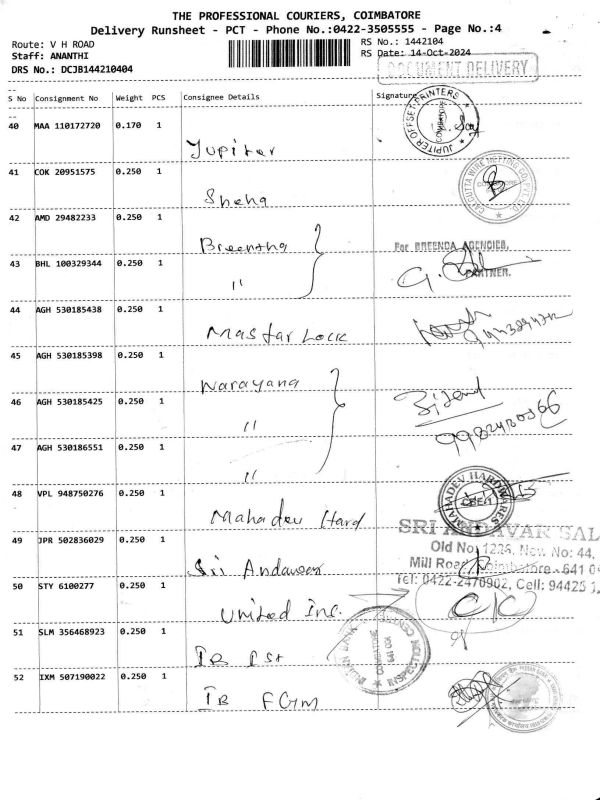 THE PROFESSIONAL COURIERS, COIMBATORE
Delivery Runsheet - PCT - Phone No.:0422-3505555 - Page No.:4
Route: V H ROAD
RS No.: 1442104
Staff: ANANTHI
RS Date: 14-Oct-2024
DRS No.: DCJB144210404
DOCUMENT DELIVERY
S No Consignment No Weight PCS Consignee Details Signature
40 MAA 110172720 0.170 1
Jupiter
JUPITER OFFSET PRINTERS COIMBATORE
41 COK 20951575 0.250 1
Sneha
CALCUTTA WIRE NETTING CO. PVT. LTD. COIMBATORE
42 AMD 29482233 0.250 1
Breentha
For BREENDA AGENCIES,
PARTNER.
43 BHL 100329344 0.250 1
"
44 AGH 530185438 0.250 1
Mastar Lock
45 AGH 530185398 0.250 1
Narayana
46 AGH 530185425 0.250 1
"
47 AGH 530186551 0.250 1
"
48 VPL 948750276 0.250 1
Mahadev Hard
MAHADEV HARDWARES CBE-1
49 JPR 502836029 0.250 1
Sri Andavar
SRI ANDAVAR SAL
Old No: 1226, New No: 44,
Mill Road, Coimbatore - 641 0
Tel: 0422-2470902, Cell: 94425
50 STY 6100277 0.250 1
United Inc.
51 SLM 356468923 0.250 1
IB Ist
INDIAN BANK INSPECTION COIMBATORE 641 001
52 IXM 507190022 0.250 1
IB FGM